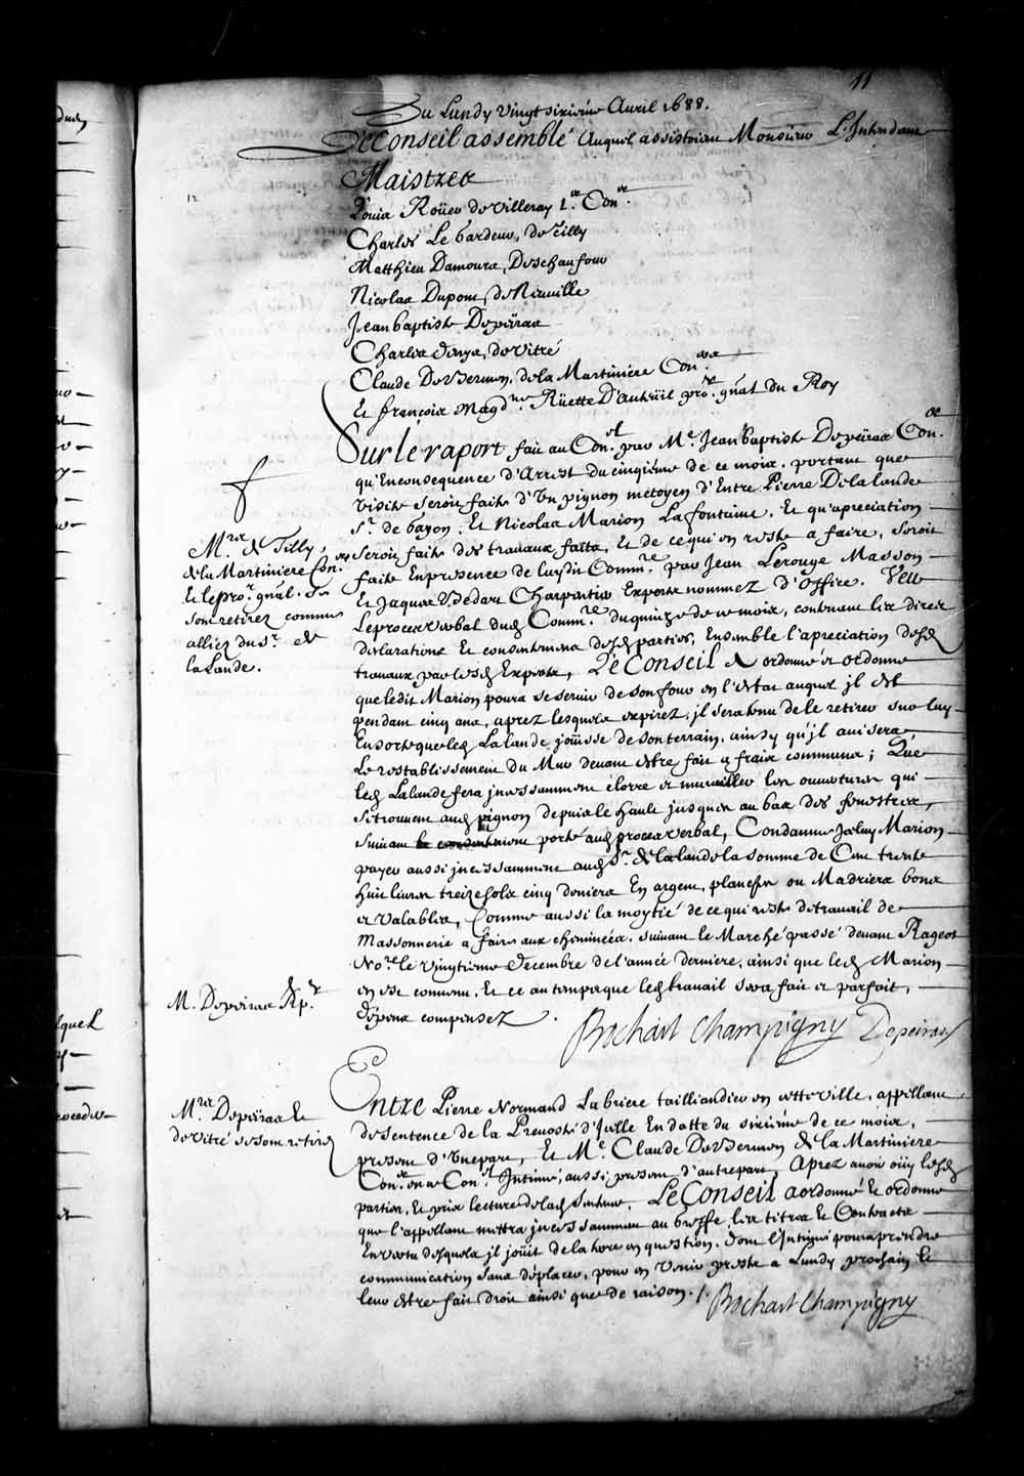 11
Du Lundy vingt sixieme Avril 1688.
Le Conseil assemblé Auquel assistoient Monsieur L'Intendant
Maistres
Louis Roüer de Villeray 1.er Con.er
Charles Le Gardeur, de Tilly
Matthieu Damours, Deschaufour
Nicolas Dupont, de Neuville
Jean Baptiste Depeiras
Charles Denys, de Vitré
Claude De Bermen, de la Martiniere Con.ers
Et françois Magd.ne Rüette D'Auteüil pro.r gnal du Roy
Sur le raport fait au Con.el par M.e Jean Baptiste Depeiras Con.er
qu'En consequence d'Arrest du cinqiéme de ce mois, portant que
visite seroit faite d'Un pignon metoyen d'Entre Pierre Delalande
S.r de Gayon, Et Nicolas Marion Lafontaine, Et qu'apreciation
seroit faite des travaux faits, Et de ce qui en reste a faire, seroit
faite En presence de luy dit Comm.re par Jean Lerouge Masson
Et Jaques Bedart Charpentier Experts nommez d'Office. Veu
Le procez verbal dud Comm.re du quinze de ce mois, contenant les dires
declarations Et consentemens desd parties, Ensemble l'apreciation desd
travaux par lesd Experts, Le Conseil A ordonné et ordonne
que ledit Marion poura se servir de son four en l'Estat auquel jl est
pendant cinq ans, aprez lesquels expirez, jl sera tenu de le retirer sur luy
En sorte que led Lalande joüisse de son terrain, ainsy qu'jl avisera,
Le restablissement du Mur devant estre fait a fraix communs; Que
led Lalande fera jncessamment clorre et murailler les ouvertures qui
se trouvent aud pignon depuis le haut jusques au bas des fenestres,
suivant porté aud procez verbal, Condamne jceluy Marion
payer aussi jncessamment aud S.r de la lande la somme de Cent trente
huit livres treize sols cinq deniers En argent, planches ou Madriers bons
et valables, Comme aussi la moytié de ce qui reste de travail de
Massonnerie a faire aux cheminées, suivant le Marché passé devant Rageot
No.re le vingtieme Decembre de l'année derniere, ainsi que led Marion
en est convenu, Et ce au temps que led travail sera fait et parfait,
dépens compensez.
Bochart Champigny Depeiras
M.rs de Tilly,
de la Martiniere Con.ers
Et le pro.r gnal. se
sont retirez comme
alliez du S.r de
la Lande.
M. Depeiras Rp.r
Entre Pierre Normand Labriere taillandier en cette ville, appellant
de sentence de la Prevosté d'jcelle En datte du sixiéme de ce mois,
present d'Une part, Et M.e Claude De Bermen de la Martiniere
Con.er en ce Con.el Intimé, aussi present d'autre part, Aprez avoir oüy lesd
parties, Et pris lecture de lad sentence, Le Conseil a ordonné Et ordonne
que l'appellant mettra jncessamment au Greffe, les titres Et Contracts
En vertu desquels jl joüit de la terre en question, dont l'Intimé poura prendre
communication sans déplacer, pour en Venir prest a Lundy prochain Et
leur estre fait droit ainsi que de raison./.
Bochart Champigny
M.rs Depeiras Et
de Vitré se sont retirez